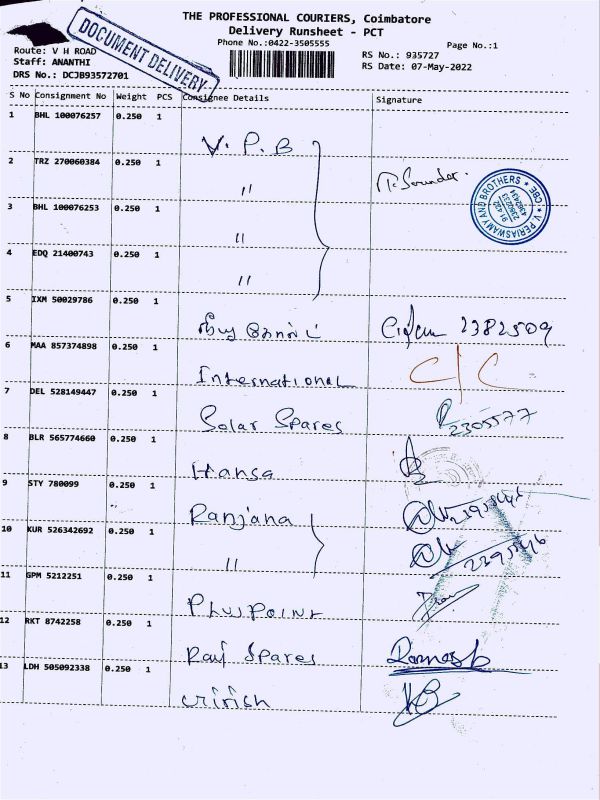 THE PROFESSIONAL COURIERS, Coimbatore
Delivery Runsheet - PCT
Phone No.:0422-3505555
Page No.:1
DOCUMENT DELIVERY
Route: V H ROAD
Staff: ANANTHI
DRS No.: DCJB93572701
RS No.: 935727
RS Date: 07-May-2022
S No Consignment No Weight PCS Consignee Details Signature
1 BHL 100076257 0.250 1 V. P. B
2 TRZ 270060384 0.250 1 "
V. PERIASWAMY AND BROTHERS * CBE *
3 BHL 100076253 0.250 1 "
4 EDQ 21400743 0.250 1 "
5 IXM 50029786 0.250 1 2382509
6 MAA 857374898 0.250 1 International C/C
7 DEL 528149447 0.250 1 Solar Spares 2305577
8 BLR 565774660 0.250 1 Hansa
9 STY 780099 0.250 1 Ranjana
10 KUR 526342692 0.250 1 "
11 GPM 5212251 0.250 1 Plus Point
12 RKT 8742258 0.250 1 Ravi Spares
13 LDH 505092338 0.250 1